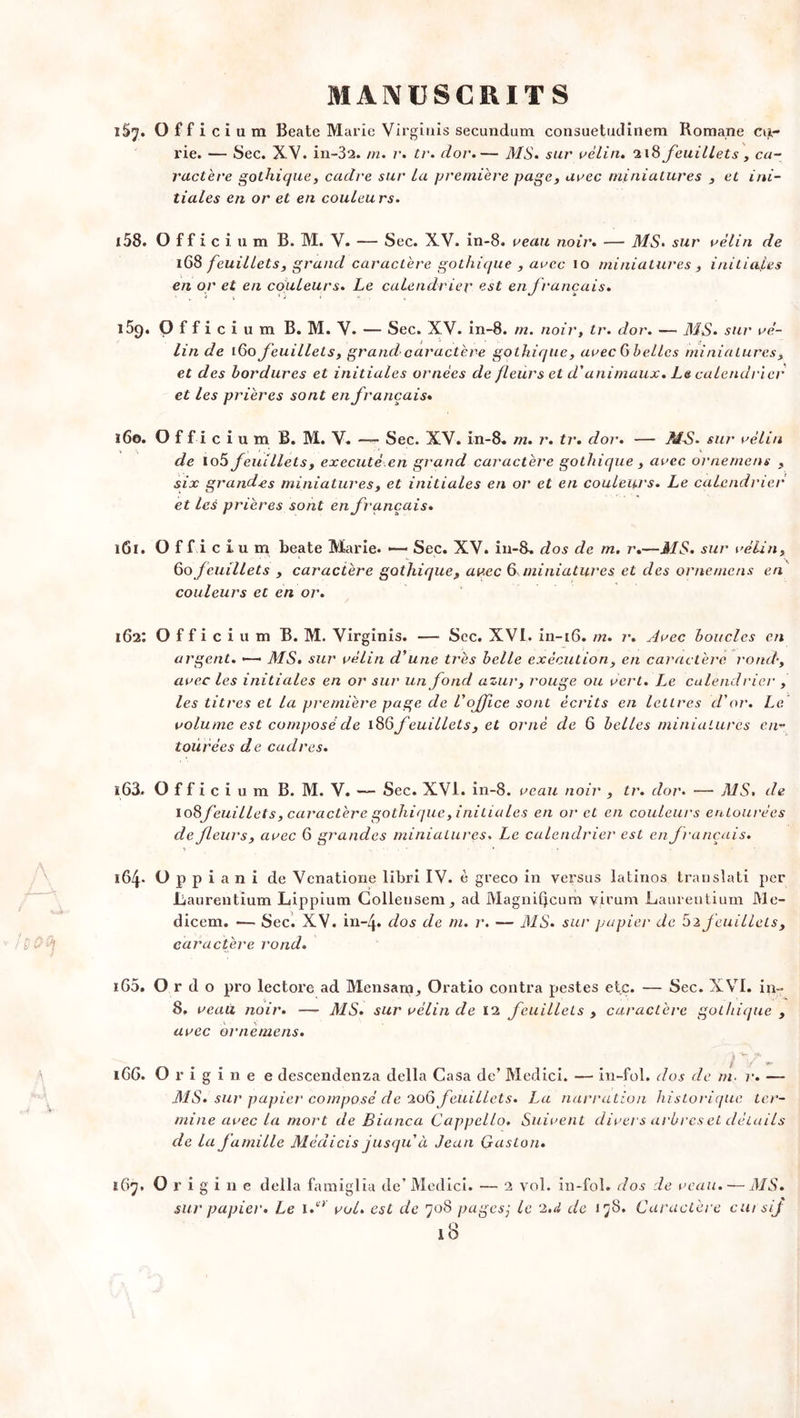 MANUSCRITS
157. Officium Beate Marie Virginis secundum consuetudinem Romane cu-
rie. — Sec. XV. in-32. m. r. tr. dor. — MS. sur vélin. 218 feuillets, ca-
ractère gothique, cadre sur la première page, avec miniatures, et ini-
tiales en or et en couleurs.
158. Officium B. M. V. — Sec. XV. in-8. veau noir. — MS. sur vélin de
168 feuillets, grand caractère gothique, avec 10 miniatures, initiales
en or et en couleurs. Le calendrier est en français.
159. Officium B. M. V. — Sec. XV. in-8. m. noir, tr. dor. — MS. sur vé-
lin de 160 feuillets, grand caractère gothique, avec 6 belles miniatures,
et des bordures et initiales ornées de fleurs et d'animaux. Le calendrier
et les prières sont en français.
160. Officium B. M. V. — Sec. XV. in-8. m. r. tr. dor. — MS. sur vélin
de 105 feuillets, executé en grand caractère gothique, avec ornemens,
six grandes miniatures, et initiales en or et en couleurs. Le calendrier
et les prières sont en français.
161. Officium beate Marie. — Sec. XV. in-8. dos de m. r. — MS. sur vélin,
60 feuillets, caractère gothique, avec 6 miniatures et des ornemens en
couleurs et en or.
162: Officium B. M. Virginis. — Sec. XVI. in-16. m. r. Avec boucles en
argent. — MS. sur vélin d'une très belle exécution, en caractère rond,
avec les initiales en or sur un fond azur, rouge ou vert. Le calendrier,
les titres et la première page de l'office sont écrits en lettres d'or. Le
volume est composé de 186 feuillets, et orné de 6 belles miniatures en-
tourées de cadres.
163. Officium B. M. V. — Sec. XVI. in-8. veau noir, tr. dor. — MS. de
108 feuillets, caractère gothique, initiales en or et en couleurs entourées
de fleurs, avec 6 grandes miniatures. Le calendrier est en français.
164. Oppiani de Venatione libri IV. è greco in versus latinos translati per
Laurentium Lippium Collensem, ad Magnificum virum Laurentium Me-
dicem. — Sec. XV. in-4. dos de m. r. — MS. sur papier de 52 feuillets,
caractère rond.
165. Ordo pro lectore ad Mensam, Oratio contra pestes etc. — Sec. XVI. in-
8. veau noir. — MS. sur vélin de 12 feuillets, caractère gothique,
avec ornemens.
166. Origine e descendenza della Casa de' Medici. — in-fol. dos de m. r. —
MS. sur papier composé de 206 feuillets. La narration historique ter-
mine avec la mort de Bianca Cappello. Suivent divers arbres et détails
de la famille Médicis jusqu'à Jean Gaston.
167. Origine della famiglia de' Medici. — 2 vol. in-fol. dos de veau. — MS.
sur papier. Le 1.er vol. est de 708 pages; le 2.d de 178. Caractère cursif
18